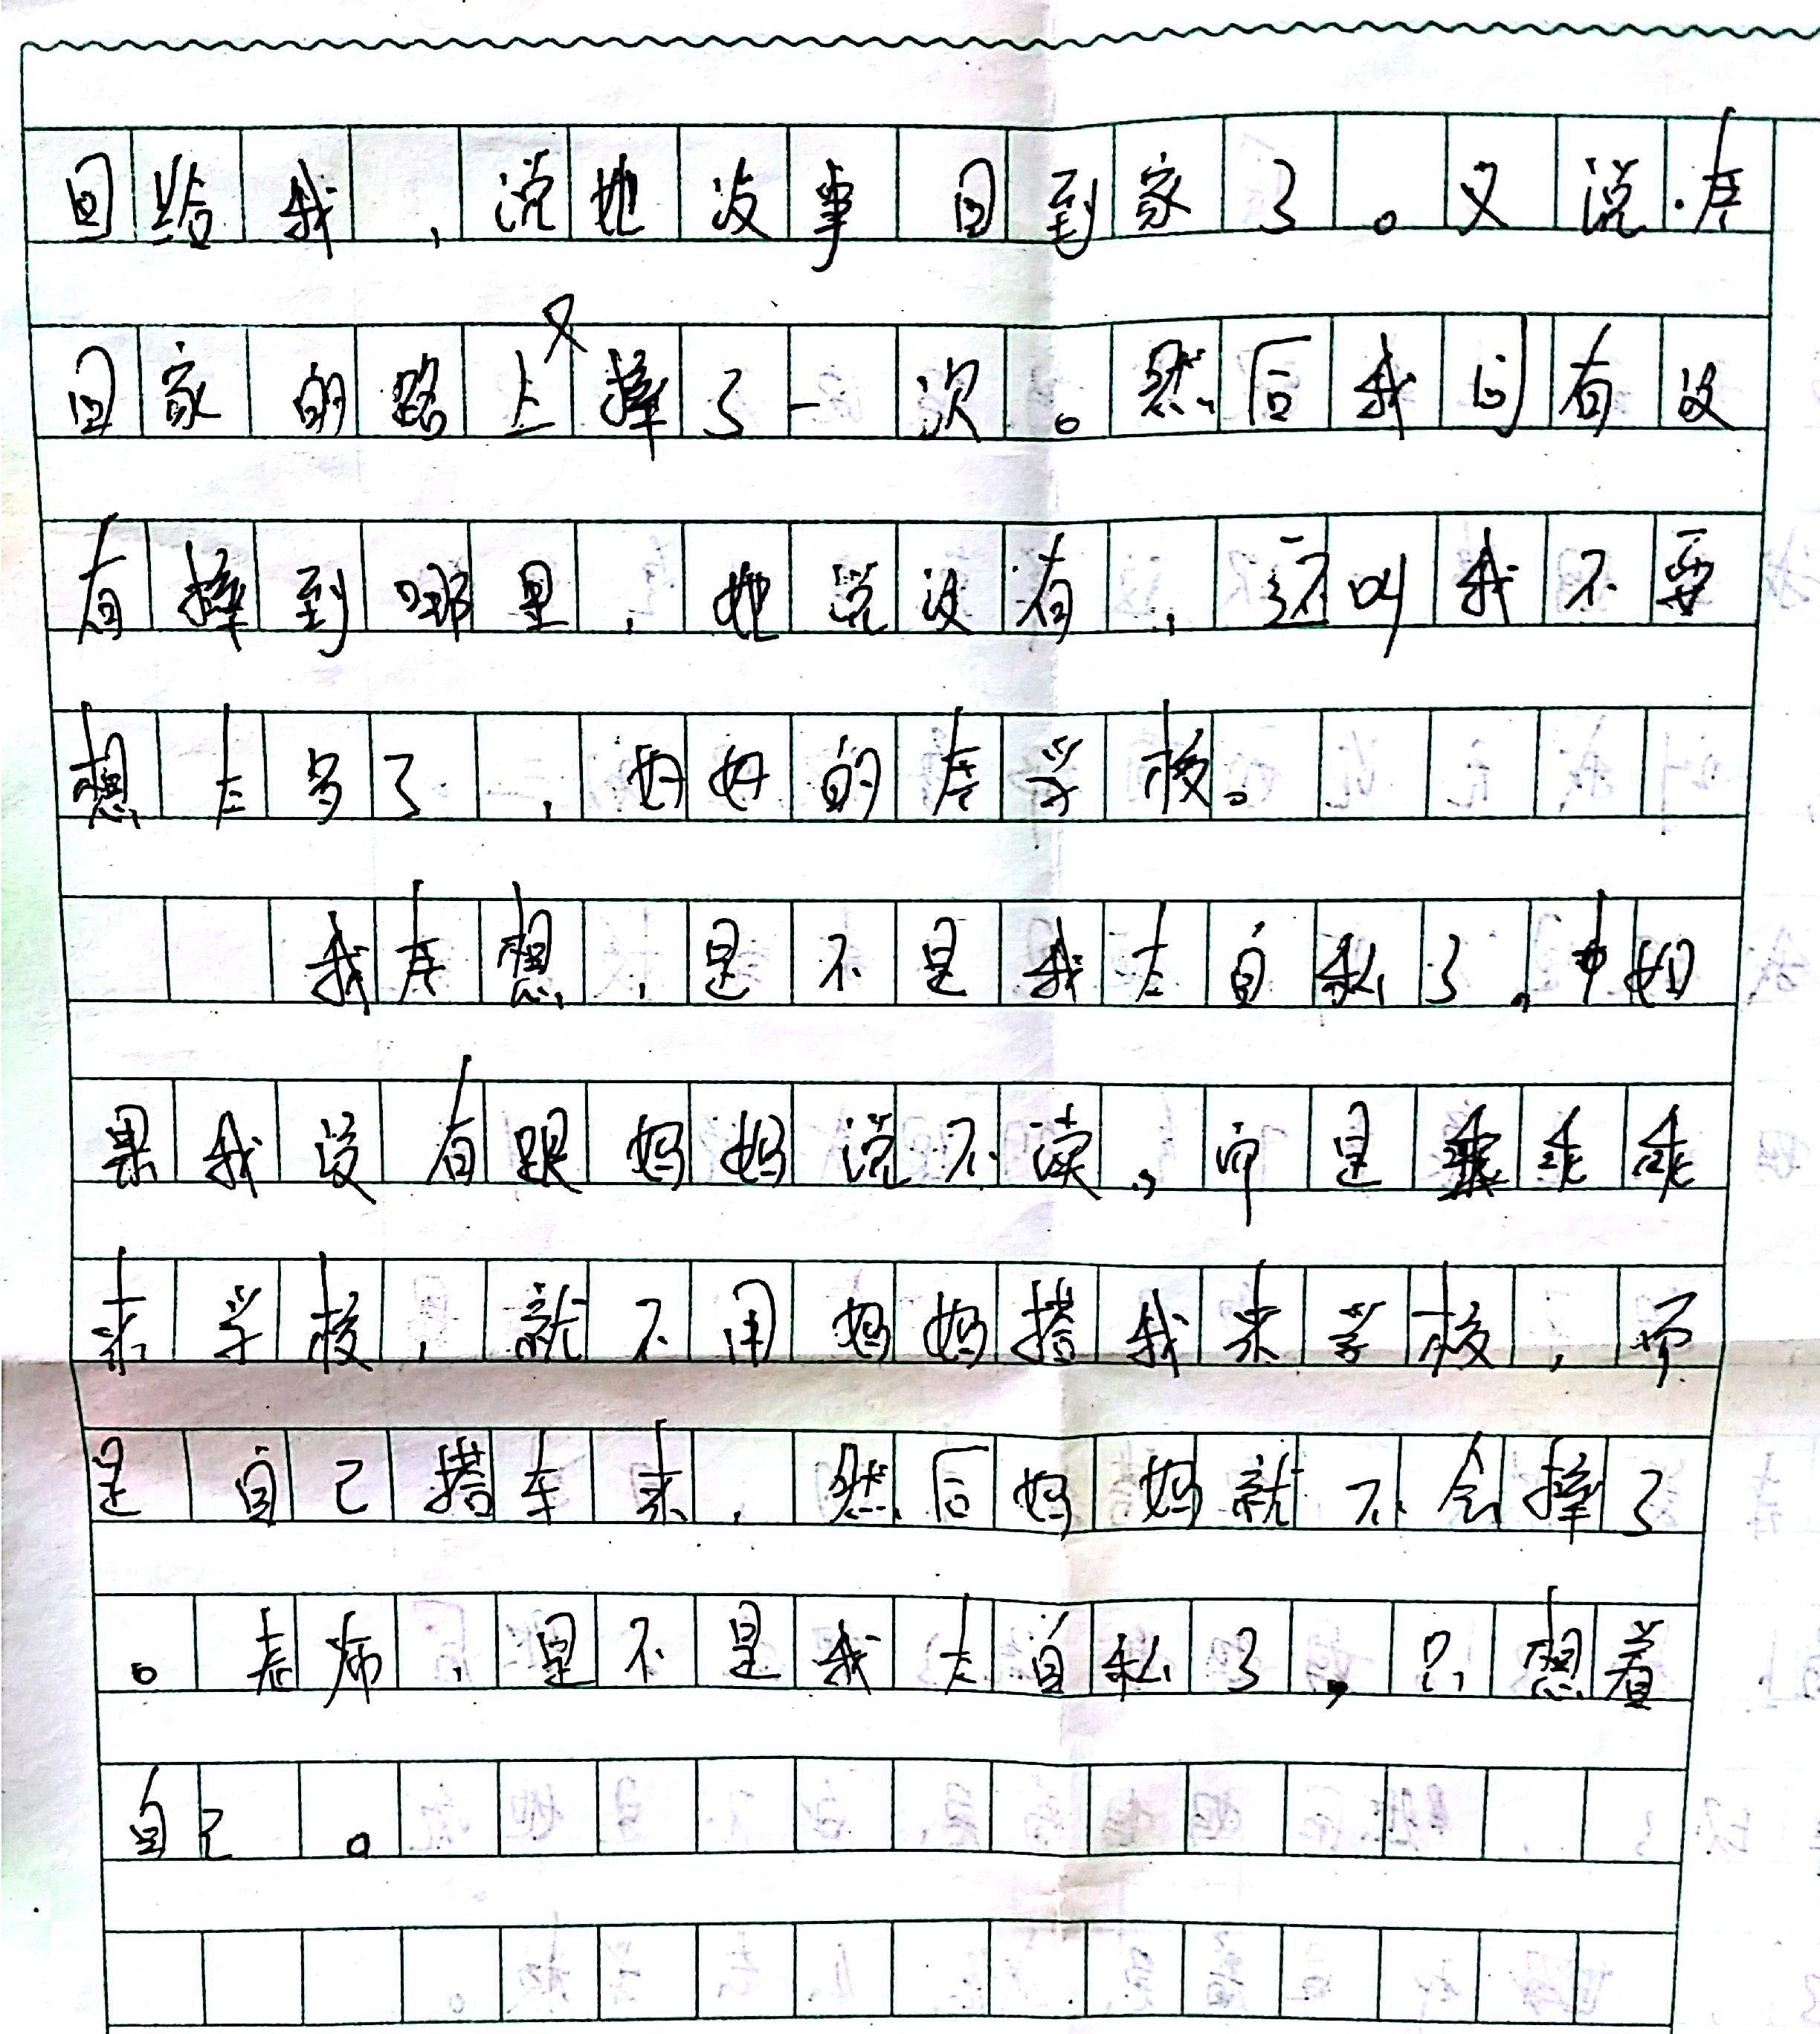 回给我，说她没事回到家了。又说在
回家的路上又摔了一次。然后我问有没
有摔到哪里，她说没有，还叫我不要
想太多了，好好的在学校。
我在想，是不是我太自私了，如
果我没有跟妈妈说不读，而是乖乖
来学校，就不用妈妈搭我来学校，而
是自己搭车来，然后妈妈就不会摔了
。老师，是不是我太自私了，只想着
自己。